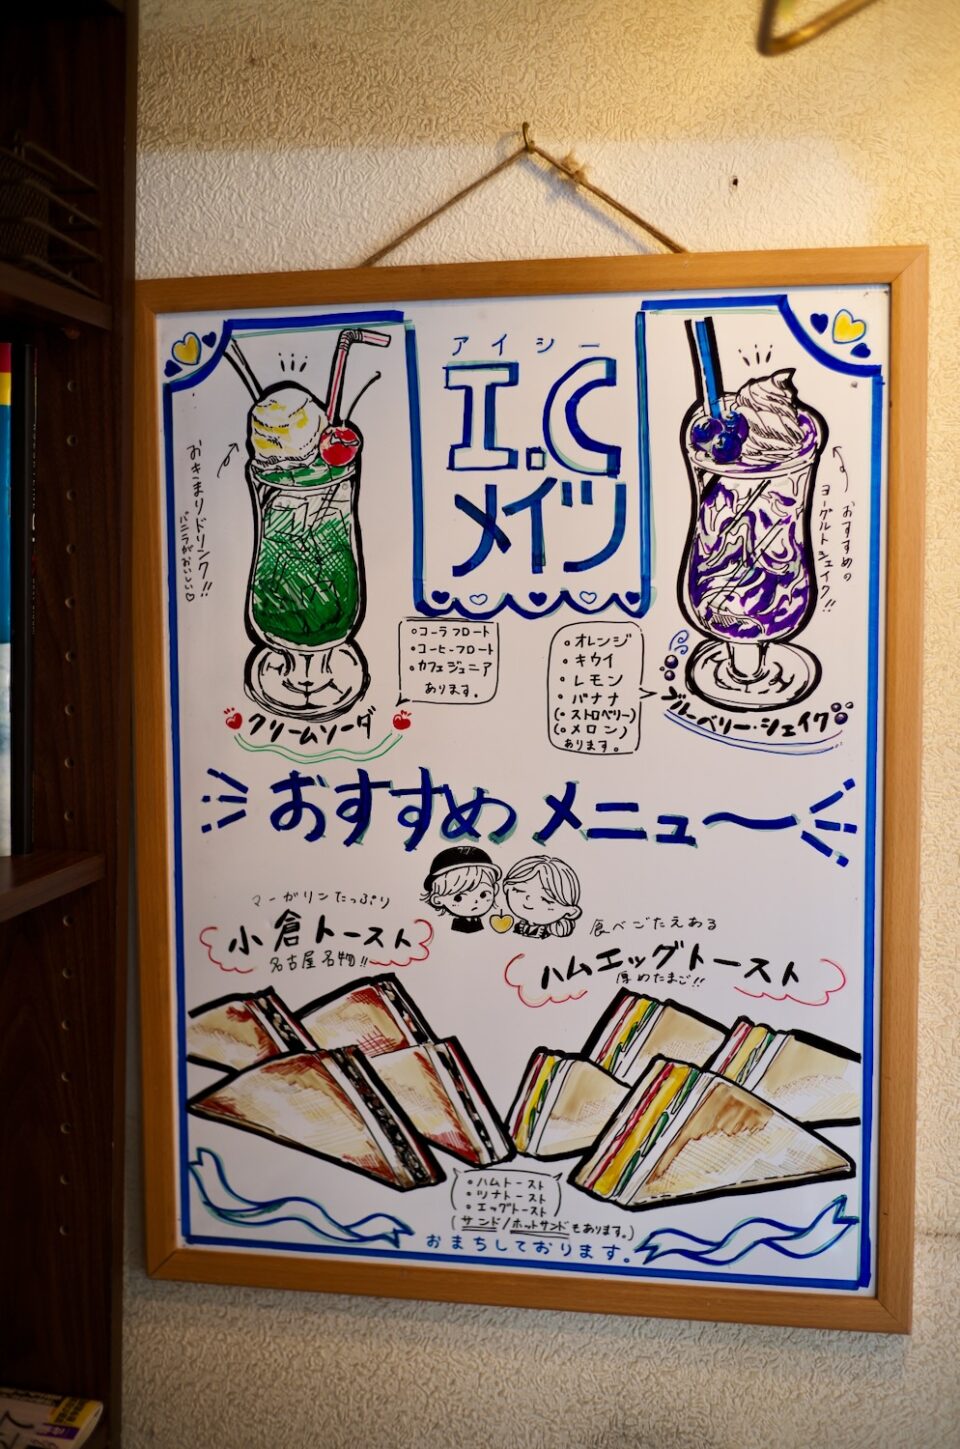 アイシー
I.C
メイツ
おきまりドリンク!!
バニラがおいしい♡
おすすめの
ヨーグルトシェイク!!
・コーラフロート
・コーヒーフロート
・カフェジュニア
あります。
クリームソーダ
・オレンジ
・キウイ
・レモン
・バナナ
(・ストロベリー)
(・メロン)
あります。
ブルーベリー・シェイク
おすすめメニュ〜
マーガリンたっぷり
小倉トースト
名古屋名物!!
食べごたえある
ハムエッグトースト
厚めたまご!!
・ハムトースト
・ツナトースト
・エッグトースト
(サンド/ホットサンドもあります。)
おまちしております。